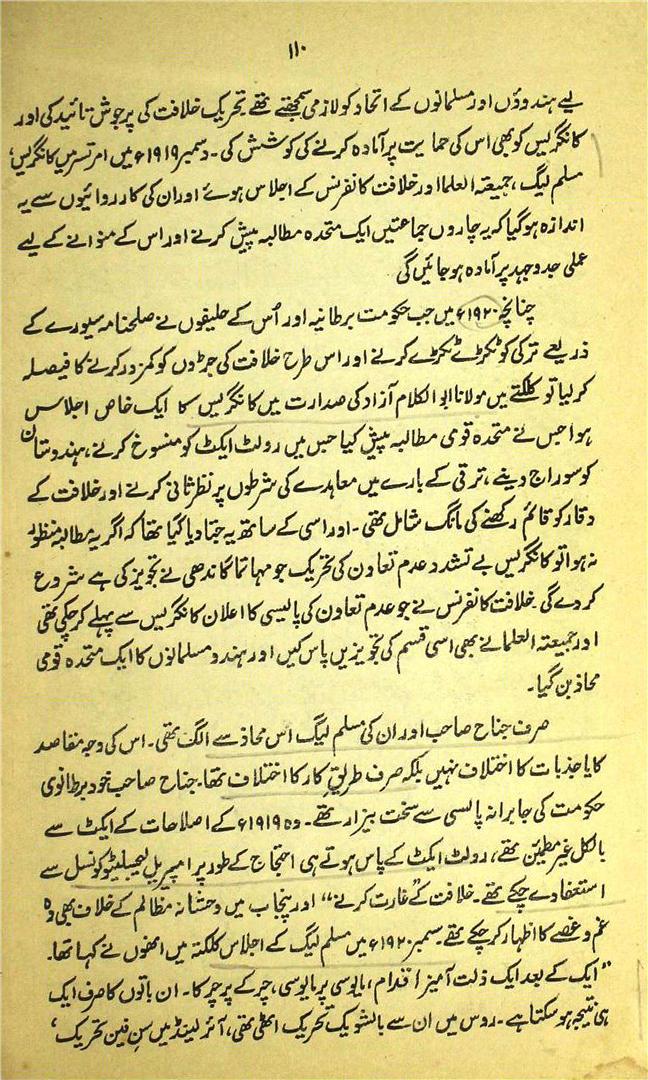 ۱۱۰
لیے ہندوؤں اور مسلمانوں کے اتحاد کو لازمی سمجھتے تھے تحریک خلافت کی پرجوش تائید کی اور
کانگریس کو بھی اس کی حمایت پر آمادہ کرنے کی کوشش کی۔ دسمبر ۱۹۱۹ء میں امرتسر میں کانگریس،
مسلم لیگ، جمیعتہ العلما اور خلافت کانفرنس کے اجلاس ہوئے اور ان کی کارروائیوں سے یہ
اندازہ ہوگیا کہ یہ چاروں جماعتیں ایک متحدہ مطالبہ پیش کرنے اور اس کے منوانے کے لیے
عملی جدوجہد پر آمادہ ہو جائیں گی
چنانچہ ۱۹۲۰ء میں جب حکومت برطانیہ اور اُس کے حلیفوں نے صلحنامہ سیورے کے
ذریعے ترکی کو ٹکڑے ٹکڑے کرنے اور اس طرح خلافت کی جڑوں کو کمزور کرنے کا فیصلہ
کرلیا تو کلکتے میں مولانا ابوالکلام آزاد کی صدارت میں کانگریس کا ایک خاص اجلاس
ہوا جس نے متحدہ قومی مطالبہ پیش کیا جس میں رولٹ ایکٹ کو منسوخ کرنے، ہندوستان
کو سوراج دینے، ترقی کے بارے میں معاہدے کی شرطوں پر نظرثانی کرنے اور خلافت کے
وقار کو قائم رکھنے کی مانگ شامل تھی۔ اور اسی کے ساتھ یہ جتا دیا گیا تھا کہ اگر یہ مطالبہ منظور
نہ ہوا تو کانگریس بے تشدد عدم تعاون کی تحریک جو مہاتما گاندھی نے تجویز کی ہے شروع
کر دے گی۔ خلافت کانفرنس نے جو عدم تعاون کی پالیسی کا اعلان کانگریس سے پہلے کر چکی تھی
اور جمیعتہ العلما نے بھی اسی قسم کی تجویزیں پاس کیں اور ہندو مسلمانوں کا ایک متحدہ قومی
محاذ بن گیا۔
صرف جناح صاحب اور ان کی مسلم لیگ اس محاذ سے الگ تھی۔ اس کی وجہ مقاصد
کا یا جذبات کا اختلاف نہیں بلکہ صرف طریق کار کا اختلاف تھا۔ جناح صاحب خود برطانوی
حکومت کی جابرانہ پالسی سے سخت بیزار تھے۔ وہ ۱۹۱۹ء کے اصلاحات کے ایکٹ سے
بالکل غیر مطمئن تھے، رولٹ ایکٹ کے پاس ہوتے ہی احتجاج کے طور پر امپیریل لیجسلیٹو کونسل سے
استعفا دے چکے تھے۔ خلافت کے ”غارت کرنے“ اور پنجاب میں وحشانہ مظالم کے خلاف بھی وہ
غم و غصے کا اظہار کر چکے تھے۔ سمبر ۱۹۲۰ء میں مسلم لیگ کے اجلاس کلکتہ میں انھوں نے کہا تھا۔
”ایک کے بعد ایک ذلت آمیز اقدام، مایوسی پر مایوسی، چرکے پر چرکا۔ ان باتوں کا صرف ایک
ہی نتیجہ ہو سکتا ہے۔ روس میں ان سے بالشویک تحریک اٹھی تھی، آئرلینڈ میں سِن فین تحریک،